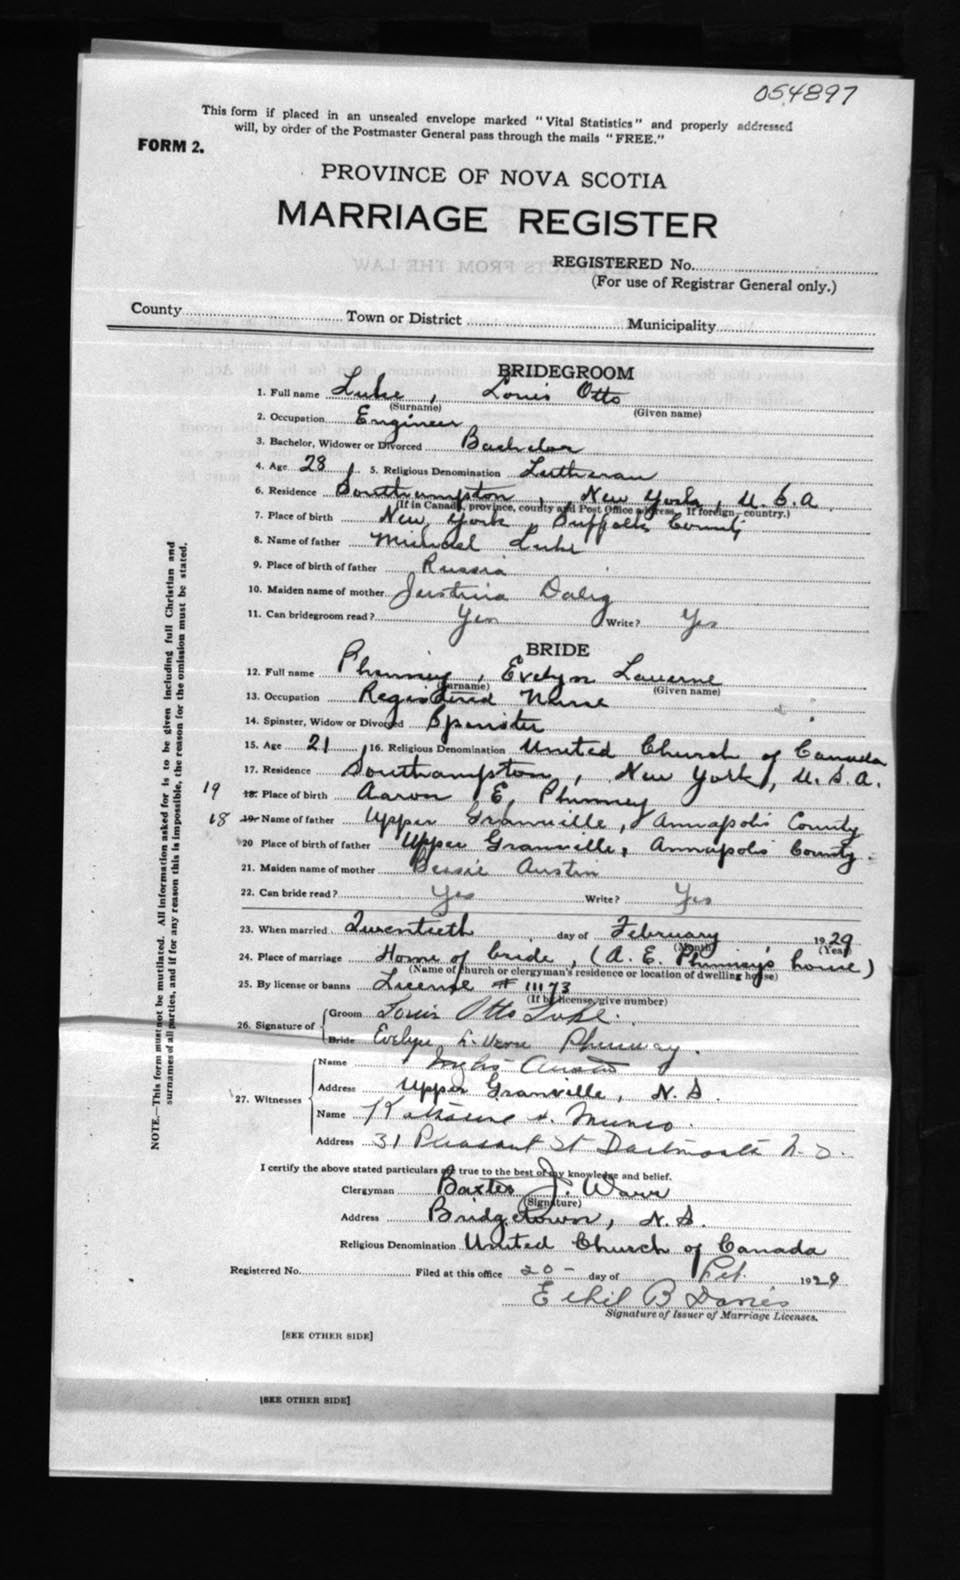 054897
This form if placed in an unsealed envelope marked "Vital Statistics" and properly addressed
will, by order of the Postmaster General pass through the mails "FREE."
FORM 2.
PROVINCE OF NOVA SCOTIA
MARRIAGE REGISTER
REGISTERED No.
(For use of Registrar General only.)
County Town or District Municipality
BRIDEGROOM
1. Full name Luke, Louis Otto
(Surname) (Given name)
2. Occupation Engineer
3. Bachelor, Widower or Divorced Bachelor
4. Age 28, 5. Religious Denomination Lutheran
6. Residence Southampton, New York, U.S.A.
(If in Canada, province, county and Post Office address. If foreign, country.)
7. Place of birth New York, Suffolk County
8. Name of father Michael Luke
9. Place of birth of father Russia
10. Maiden name of mother Justina
11. Can bridegroom read? Yes Write? Yes
BRIDE
12. Full name Phinney, Evelyn Laverne
(Surname) (Given name)
13. Occupation Registered Nurse
14. Spinster, Widow or Divorced Spinster
15. Age 21, 16. Religious Denomination United Church of Canada
17. Residence Southampton, New York, U.S.A.
19 18. Place of birth Aaron E. Phinney
18 19. Name of father Upper Granville, Annapolis County
20 Place of birth of father Upper Granville, Annapolis County.
21. Maiden name of mother Bessie Austin
22. Can bride read? Yes Write? Yes
23. When married Twentieth day of February 1929
(Month) (Year)
24. Place of marriage Home of bride, (A. E. Phinney's house)
(Name of church or clergyman's residence or location of dwelling house)
25. By license or banns License # 11173
(If by license, give number)
26. Signature of Groom Louis Otto Luke.
Bride Evelyn L. Verne Phinney.
27. Witnesses
Name Austin
Address Upper Granville, N.S.
Name Munro.
Address 31 Pleasant St Dartmouth N.S.
I certify the above stated particulars are true to the best of my knowledge and belief.
Clergyman Baxter J.
(Signature)
Address Bridgetown, N.S.
Religious Denomination United Church of Canada
Registered No. Filed at this office 20- day of Feb. 1929
Ethel B Davies
Signature of Issuer of Marriage Licenses.
[SEE OTHER SIDE]
[SEE OTHER SIDE]
NOTE.—This form must not be mutilated. All information asked for is to be given including full Christian and
surnames of all parties, and if for any reason this is impossible, the reason for the omission must be stated.